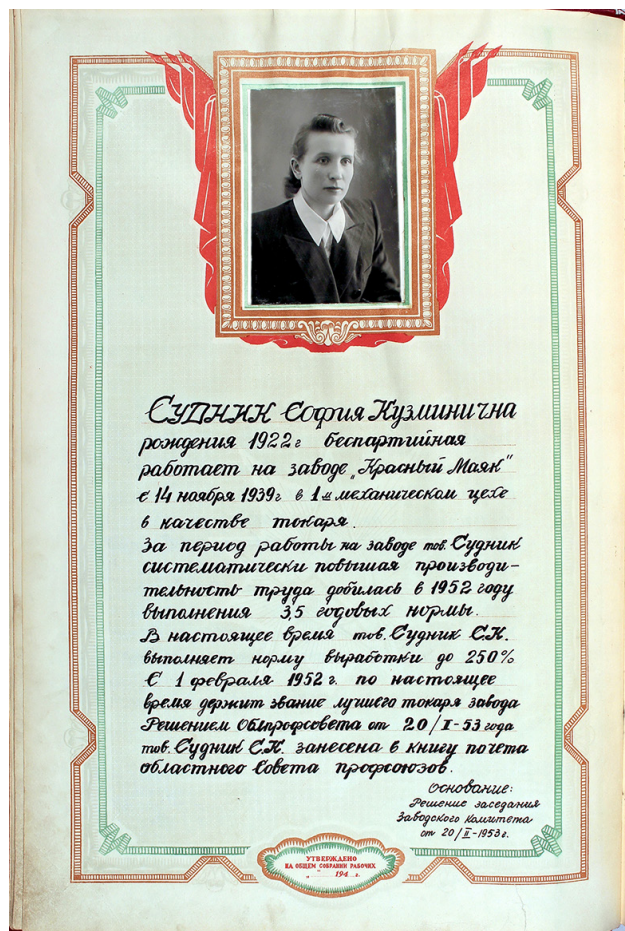 Судник София Кузминична
рождения 1922г беспартийная
работает на заводе „Красный Маяк"
с 14 ноября 1939г в 1ом механическом цехе
в качестве токаря.
За период работы на заводе тов. Судник
систематически повышая производи-
тельность труда добилась в 1952 году
выполнения 3,5 годовых нормы.
В настоящее время тов. Судник С.К.
выполняет норму выработки до 250%
С 1 февраля 1952 г. по настоящее
время держит звание лучшего токаря завода
Решением Облпрофсовета от 20/I-53 года
тов. Судник С.К. занесена в книгу почета
областного Совета профсоюзов.
Основание:
Решение заседания
Заводского Комитета
от 20/II-1953г.
УТВЕРЖДЕНО
НА ОБЩЕМ СОБРАНИИ РАБОЧИХ
„ " 194 г.